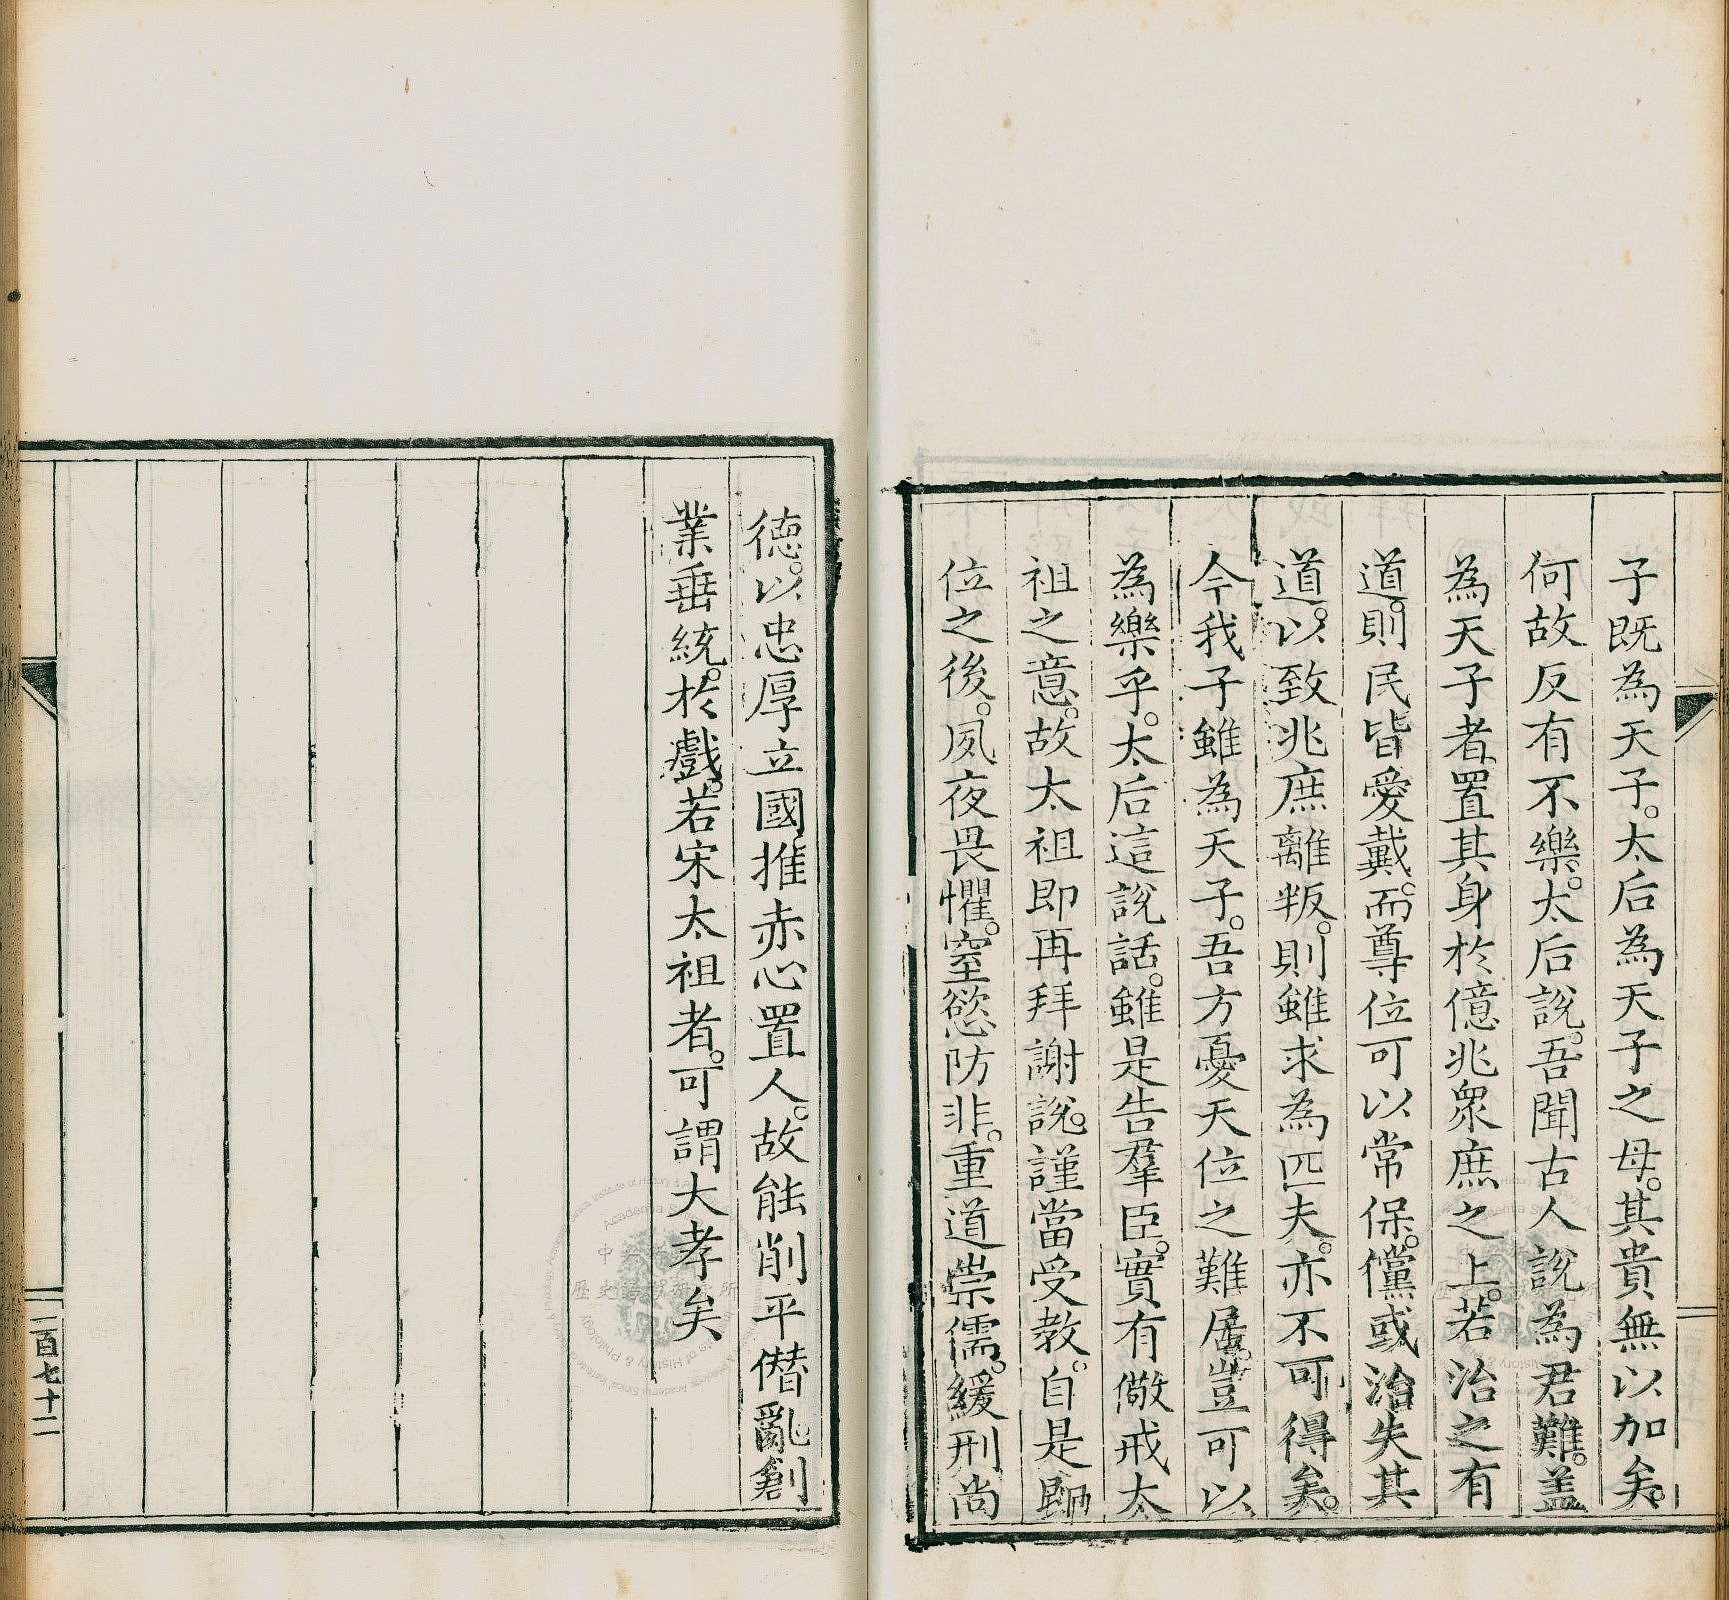 子既為天子。太后為天子之母。其貴無以加矣。
何故反有不樂。太后說。吾聞古人說為君難。盖
為天子者、置其身於億兆眾庶之上。若治之有
道。則民皆愛戴。而尊位可以常保。儻或治失其
道。以致兆庶離叛。則雖求為匹夫。亦不可得矣。
今我子雖為天子。吾方憂天位之難居。豈可以
為樂乎。太后這說話。雖是告羣臣。實有儆戒太
祖之意。故太祖即再拜謝。說。謹當受教。自是即
位之後。夙夜畏懼。窒慾防非。重道崇儒。緩刑尚
德。以忠厚立國。推赤心置人。故能削平僭亂。創
業垂統。於戲。若宋太祖者。可謂大孝矣
二百七十二